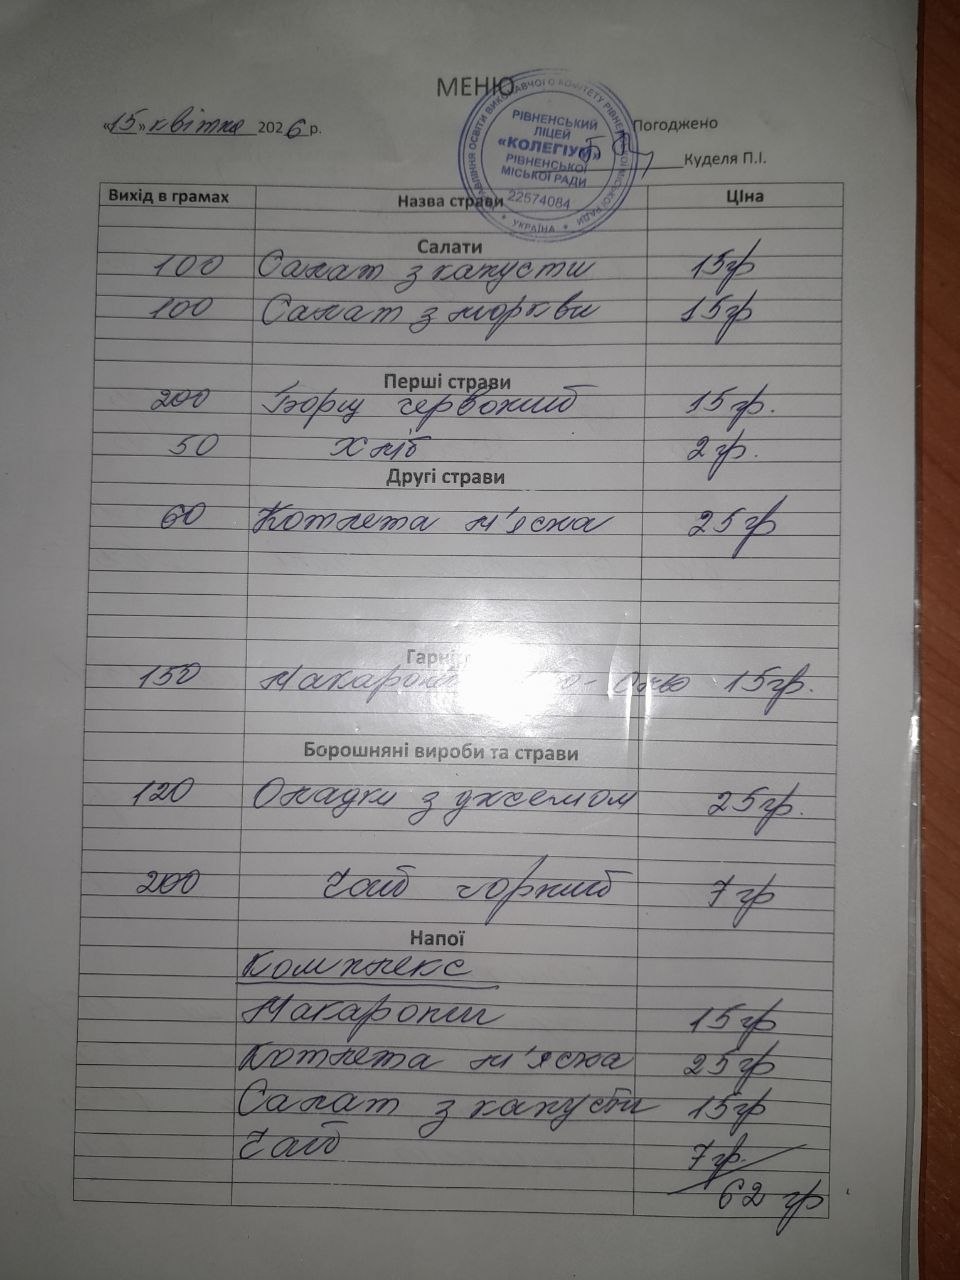 МЕНЮ
«15» квітня 2026 р.
Погоджено
Куделя П.І.
УПРАВЛІННЯ ОСВІТИ ВИКОНАВЧОГО КОМІТЕТУ РІВНЕНСЬКОЇ МІСЬКОЇ РАДИ
* УКРАЇНА *
РІВНЕНСЬКИЙ
ЛІЦЕЙ
«КОЛЕГІУМ»
РІВНЕНСЬКОЇ
МІСЬКОЇ РАДИ
22574084
Вихід в грамах Назва страви Ціна
Салати
100 Салат з капусти 15гр
100 Салат з моркви 15гр
Перші страви
200 Борщ червоний 15гр.
50 Хліб 2гр.
Другі страви
60 Котлета м'ясна 25гр
150 Макарони 15гр.
Борошняні вироби та страви
120 Оладки з джемом 25гр.
200 Чай чорний 7гр
Напої
Комплекс
Макарони 15гр
Котлета м'ясна 25гр
Салат з капусти 15гр
Чай 7гр.
62 гр